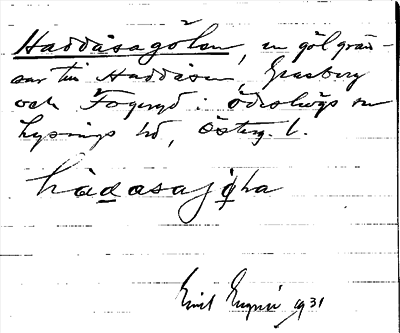 Haddåsagölen, en göl grän-
sar till Haddåsen, Grasberg
och Fogeryd i Ödeshögs sn
Lysings hd, Österg. l.
hådasajöḷna
Emil Engqvist 1931